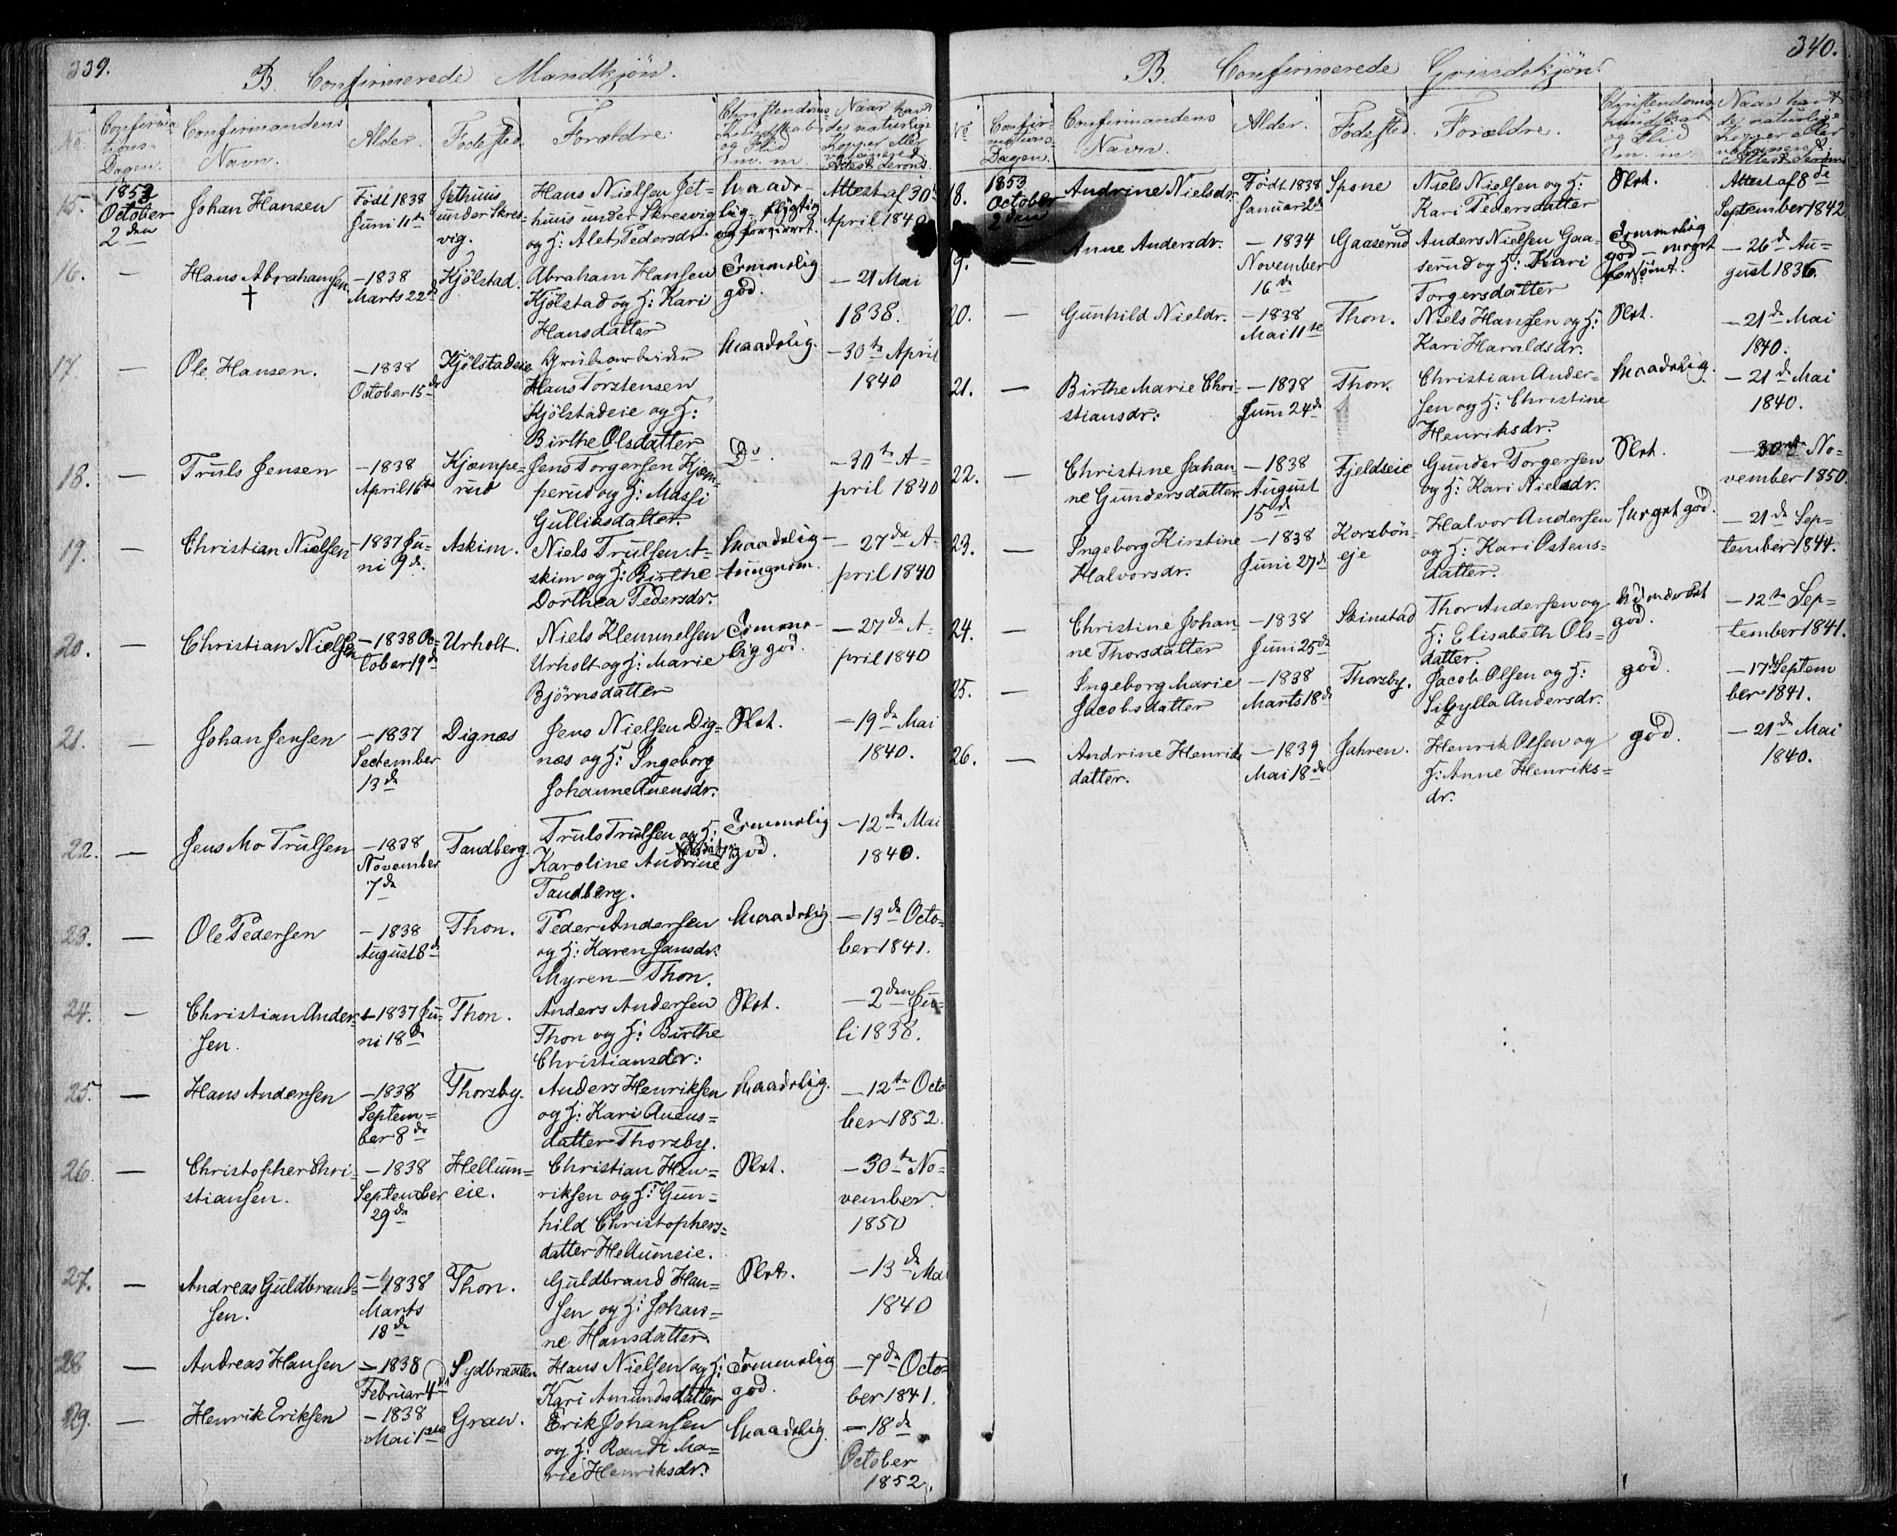 339.
B. Confirmerede Mandkjøn.
No. Confirmations-Dagen. Confirmandens Navn. Alder. Fødested. Forældre. Christendoms Kundskab og Flid m. m. Naar havt de naturlige Kopper eller vaccinered Attest derom
15. 1853 October 2den Johan Hansen Født 1838 Juni 11te Jethuus under Skresvig. Hans Nielsen Jethuus under Skresvig og H: Alet Pedersdr. Maadelig- flygtig og Attest af 30te April 1840
16. — Hans Abrahamsen † —1838 Marts 22d Kjølstad. Abraham Hansen Kjølstad og H: Kari Hansdatter Temmelig god. — 21 Mai 1838.
17. — Ole Hansen. —1838 October 15de Kjølstadeie Grubearbeider Hans Torstensen Kjølstadeie og H: Birthe Olsdatter Maadelig. —30te April 1840
18. — Truls Jensen —1838 April 16de Kjæmperud Jens Torgersen Kjæmperud og H: Massi Gulliksdatter. Do. —30te April 1840
19. — Christian Nielsen —1837 Juni 9de. Askim. Niels Trulsen Askim og H: Birthe Dorthea Pedersdr. Maadelig — tungnem. — 27de April 1840
20. — Christian Nielsen —1838 October 19de Urholt. Niels Klemmetsen Urholt og H: Marie Bjørnsdatter Temmelig god. — 27de April 1840
21. — Johan Jensen —1837 September 13de Dignæs Jens Nielsen Dignæs og H: Ingeborg Johanne Auensdr. Slet. —19de Mai 1840.
22. — Jens Mo Trulsen —1838 November 7de Tandberg. Truls Trulsen og H: Karoline Andrine Tandberg. Temmelig god. —12te Mai 1840.
23. — Ole Pedersen —1838 August 8de Thon. Peder Andersen og H: Karen Jansdr. Myren—Thon. Maadelig. —13de October 1841.
24. — Christian Andersen. —1837 Juni 18de Thon. Anders Andersen Thon og H: Birthe Christiansdr: Slet. —2den Juli 1838.
25. — Hans Andersen —1838 September 8de Thorsby. Anders Henriksen og H: Kari Auensdatter Thorsby. Maadelig. —12te October 1852.
26. — Christopher Christiansen. —1838 September 29de Hellumeie. Christian Henriksen og H: Gunhild Christophersdatter Hellumeie. Slet. —30te November 1850
27. — Andreas Guldbrandsen. —1838 Marts 18de Thon. Guldbrand Hansen og H: Johanne Hansdatter. Slet. —13de Mai 1840
28 — Andreas Hansen —1838 Februar 4de Sydbraaten Hans Nielsen og H: Kari Amundsdatter Temmelig god. —7de October 1841.
29. — Henrik Eriksen —1838 Mai 1ste Grau. Erik Johansen og H: Randi Marie Henriksdr. Maadelig. —18de October 1852.
340.
B. Confirmerede Qvindekjøn.
No. Confirmations-Dagen. Confirmandens Navn. Alder. Fødested. Forældre. Christendoms kundskab og Flid m. m. Naar havt de naturlige Kopper eller vaccinered Attest derom
18. 1853 October 2den Andrine Nielsdr. Født 1838 Januar 2de Spone Niels Nielsen og H: Kari Pedersdatter Slet. Attest af 8de September 1842
19. — Anne Andersdr. — 1834 November 16de Gaaserud Anders Nielsen Gaaserud og H: Kari Torgersdatter Temmelig god — meget forsømt. — 26de August 1836.
20. — Gunhild Nielsdr. —1838 Mai 11te Thon. Niels Hansen og H: Kari Haraldsdr. Slet. —21de Mai 1840.
21. — Birthe Marie Christiansdr: —1838 Juni 24de Thon. Christian Andersen og H: Christine Henriksdr. Maadelig. —21de Mai 1840.
22. — Christine Johanne Gundersdatter —1838 August 15de Fjeldseie Gunder Torgersen og H: Kari Nielsdr. Slet. —30te November 1850.
23. — Ingeborg Kirstine Halvorsdr. —1838 Juni 27de Korsbøneje Halvor Andersen og H: Kari Østensdatter. Meget god. —21de September 1844.
24. — Christine Johanne Thorsdatter —1838 Juni 25de Steinstad Thor Andersen og H: Elisabeth Olsdatter. god. —12te September 1841.
25. — Ingeborg Marie Jacobsdatter —1838 Marts 18de Thorsby. Jacob Olsen og H: Sibylla Andersdr. god. —17de September 1841.
26. — Andrine Henriksdatter. —1839 Mai 18de Jahren. Henrik Olsen og H: Anne Henriksdr. god. —21de Mai 1840.